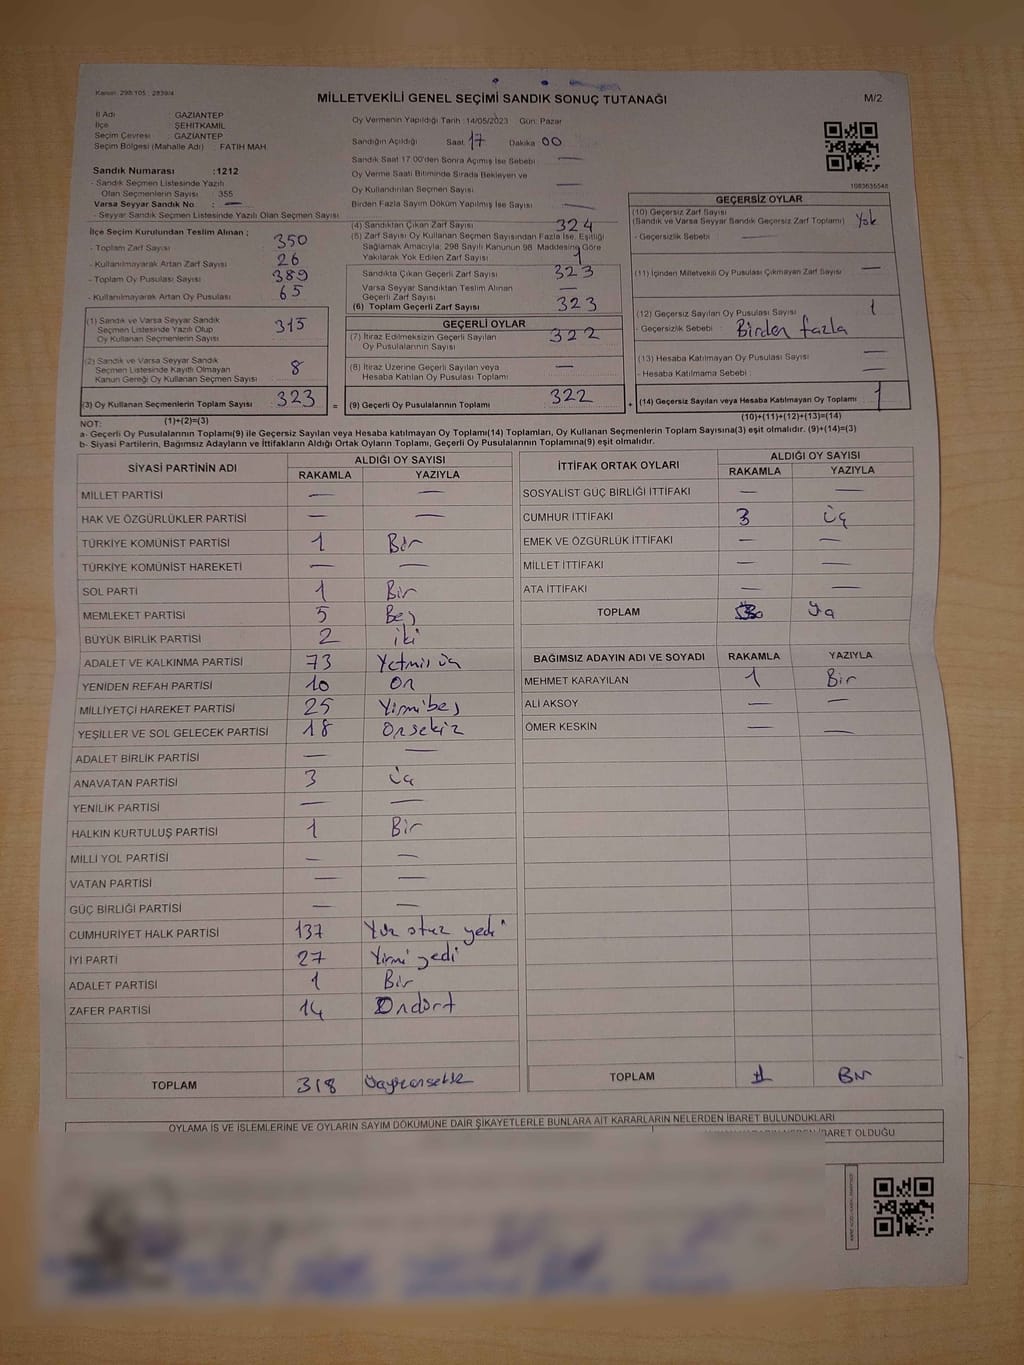 Kanun: 298/105 : 2839/4
MİLLETVEKİLİ GENEL SEÇİMİ SANDIK SONUÇ TUTANAĞI
M/2
İl Adı : GAZİANTEP
İlçe : ŞEHİTKAMİL
Seçim Çevresi : GAZİANTEP
Seçim Bölgesi (Mahalle Adı) : FATIH MAH.
Sandık Numarası : 1212
- Sandık Seçmen Listesinde Yazılı
Olan Seçmenlerin Sayısı : 355
Varsa Seyyar Sandık No : —
- Seyyar Sandık Seçmen Listesinde Yazılı Olan Seçmen Sayısı
İlçe Seçim Kurulundan Teslim Alınan ;
- Toplam Zarf Sayısı : 350
- Kullanılmayarak Artan Zarf Sayısı : 26
- Toplam Oy Pusulası Sayısı : 389
- Kullanılmayarak Artan Oy Pusulası : 65
(1) Sandık ve Varsa Seyyar Sandık
Seçmen Listesinde Yazılı Olup
Oy Kullanan Seçmenlerin Sayısı : 315
(2) Sandık ve Varsa Seyyar Sandık
Seçmen Listesinde Kayıtlı Olmayan
Kanun Gereği Oy Kullanan Seçmen Sayısı : 8
(3) Oy Kullanan Seçmenlerin Toplam Sayısı : 323
(1)+(2)=(3)
Oy Vermenin Yapıldığı Tarih : 14/05/2023 Gün: Pazar
Sandığın Açıldığı Saat 17 Dakika 00
Sandık Saat 17.00'den Sonra Açımış İse Sebebi —
Oy Verme Saati Bitiminde Sırada Bekleyen ve
Oy Kullandırılan Seçmen Sayısı : —
Birden Fazla Sayım Döküm Yapılmış İse Sayısı : —
(4) Sandıktan Çıkan Zarf Sayısı : 324
(5) Zarf Sayısı Oy Kullanan Seçmen Sayısından Fazla İse, Eşitliği
Sağlamak Amacıyla; 298 Sayılı Kanunun 98. Maddesine Göre
Yakılarak Yok Edilen Zarf Sayısı : 1
Sandıkta Çıkan Geçerli Zarf Sayısı : 323
Varsa Seyyar Sandıktan Teslim Alınan
Geçerli Zarf Sayısı : —
(6) Toplam Geçerli Zarf Sayısı : 323
GEÇERLİ OYLAR
(7) İtiraz Edilmeksizin Geçerli Sayılan
Oy Pusulalarının Sayısı : 322
(8) İtiraz Üzerine Geçerli Sayılan veya
Hesaba Katılan Oy Pusulası Toplamı : —
= (9) Geçerli Oy Pusulalarının Toplamı : 322
1083635548
GEÇERSİZ OYLAR
(10) Geçersiz Zarf Sayısı
(Sandık ve Varsa Seyyar Sandık Geçersiz Zarf Toplamı) Yok
- Geçersizlik Sebebi : —
(11) İçinden Milletvekili Oy Pusulası Çıkmayan Zarf Sayısı : —
(12) Geçersiz Sayılan Oy Pusulası Sayısı : 1
- Geçersizlik Sebebi : Birden fazla
(13) Hesaba Katılmayan Oy Pusulası Sayısı : —
- Hesaba Katılmama Sebebi : —
+ (14) Geçersiz Sayılan veya Hesaba Katılmayan Oy Toplamı : 1
(10)+(11)+(12)+(13)=(14)
NOT:
a- Geçerli Oy Pusulalarının Toplamı(9) ile Geçersiz Sayılan veya Hesaba katılmayan Oy Toplamı(14) Toplamları, Oy Kullanan Seçmenlerin Toplam Sayısına(3) eşit olmalıdır. (9)+(14)=(3)
b- Siyasi Partilerin, Bağımsız Adayların ve İttifakların Aldığı Ortak Oyların Toplamı, Geçerli Oy Pusulalarının Toplamına(9) eşit olmalıdır.
SİYASİ PARTİNİN ADI ALDIĞI OY SAYISI
RAKAMLA YAZIYLA
MİLLET PARTİSİ — —
HAK VE ÖZGÜRLÜKLER PARTİSİ — —
TÜRKİYE KOMÜNİST PARTİSİ 1 Bir
TÜRKİYE KOMÜNİST HAREKETİ — —
SOL PARTİ 1 Bir
MEMLEKET PARTİSİ 5 Beş
BÜYÜK BİRLİK PARTİSİ 2 iki
ADALET VE KALKINMA PARTİSİ 73 Yetmiş üç
YENİDEN REFAH PARTİSİ 10 On
MİLLİYETÇİ HAREKET PARTİSİ 25 Yirmibeş
YEŞİLLER VE SOL GELECEK PARTİSİ 18 Onsekiz
ADALET BİRLİK PARTİSİ — —
ANAVATAN PARTİSİ 3 üç
YENİLİK PARTİSİ — —
HALKIN KURTULUŞ PARTİSİ 1 Bir
MİLLİ YOL PARTİSİ — —
VATAN PARTİSİ — —
GÜÇ BİRLİĞİ PARTİSİ — —
CUMHURİYET HALK PARTİSİ 137 Yüz otuz yedi
İYİ PARTİ 27 Yirmi yedi
ADALET PARTİSİ 1 Bir
ZAFER PARTİSİ 14 Ondört
TOPLAM 318
İTTİFAK ORTAK OYLARI ALDIĞI OY SAYISI
RAKAMLA YAZIYLA
SOSYALİST GÜÇ BİRLİĞİ İTTİFAKI — —
CUMHUR İTTİFAKI 3 üç
EMEK VE ÖZGÜRLÜK İTTİFAKI — —
MİLLET İTTİFAKI — —
ATA İTTİFAKI — —
TOPLAM
BAĞIMSIZ ADAYIN ADI VE SOYADI RAKAMLA YAZIYLA
MEHMET KARAYILAN 1 Bir
ALİ AKSOY — —
ÖMER KESKİN — —
TOPLAM 1 Bir
OYLAMA İŞ VE İŞLEMLERİNE VE OYLARIN SAYIM DÖKÜMÜNE DAİR ŞİKAYETLERLE BUNLARA AİT KARARLARIN NELERDEN İBARET BULUNDUKLARI
İBARET OLDUĞU